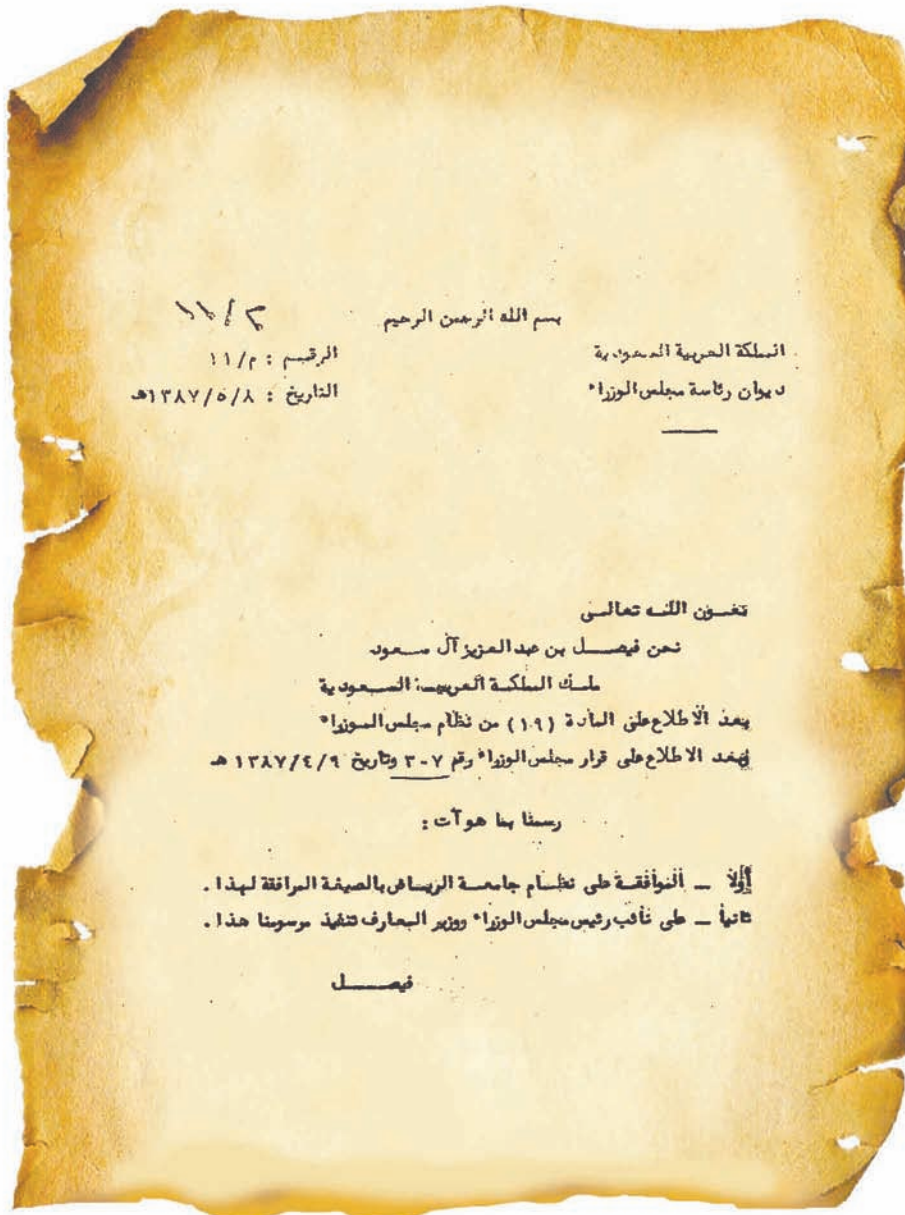 بسم الله الرحمن الرحيم
م/١١
المملكة العربية السعودية
الرقم : م/١١
ديوان رئاسة مجلس الوزراء
التاريخ : ١٣٨٧/٥/٨هـ
بعون الله تعالى
نحن فيصل بن عبد العزيز آل سعود
ملك المملكة العربية السعودية
بعد الاطلاع على المادة (١٩) من نظام مجلس الوزراء
وبعد الاطلاع على قرار مجلس الوزراء رقم ٣٠٧ وتاريخ ١٣٨٧/٤/٩ هـ
رسمنا بما هو آت :
أولا ـ الموافقة على نظام جامعة الرياض بالصيغة المرافقة لهذا .
ثانيا ـ على نائب رئيس مجلس الوزراء ووزير المعارف تنفيذ مرسومنا هذا .
فيصل